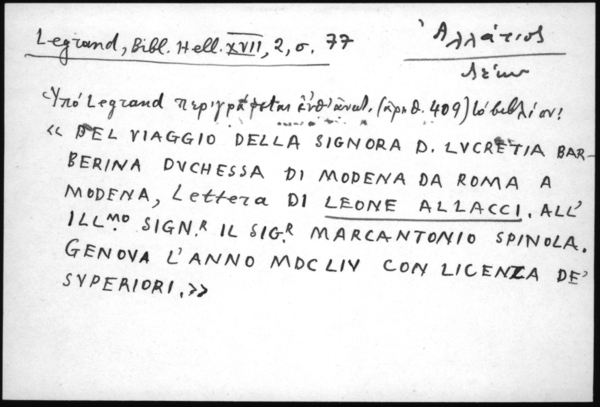 Legrand, Bibl. Hell. XVII, 2, σ. 77
Ἀλλάτιος
Λέων
Ὑπό Legrand περιγράφεται ἐνθ' ἀνωτ. (ἀριθ. 409) τό βιβλίον:
« DEL VIAGGIO DELLA SIGNORA D. LVCRETIA BAR-
BERINA DVCHESSA DI MODENA DA ROMA A
MODENA, Lettera DI LEONE ALLACCI. ALL'
ILL.MO SIGN.R IL SIG.R MARCANTONIO SPINOLA.
GENOVA L'ANNO MDCLIV CON LICENZA DE'
SVPERIORI. »